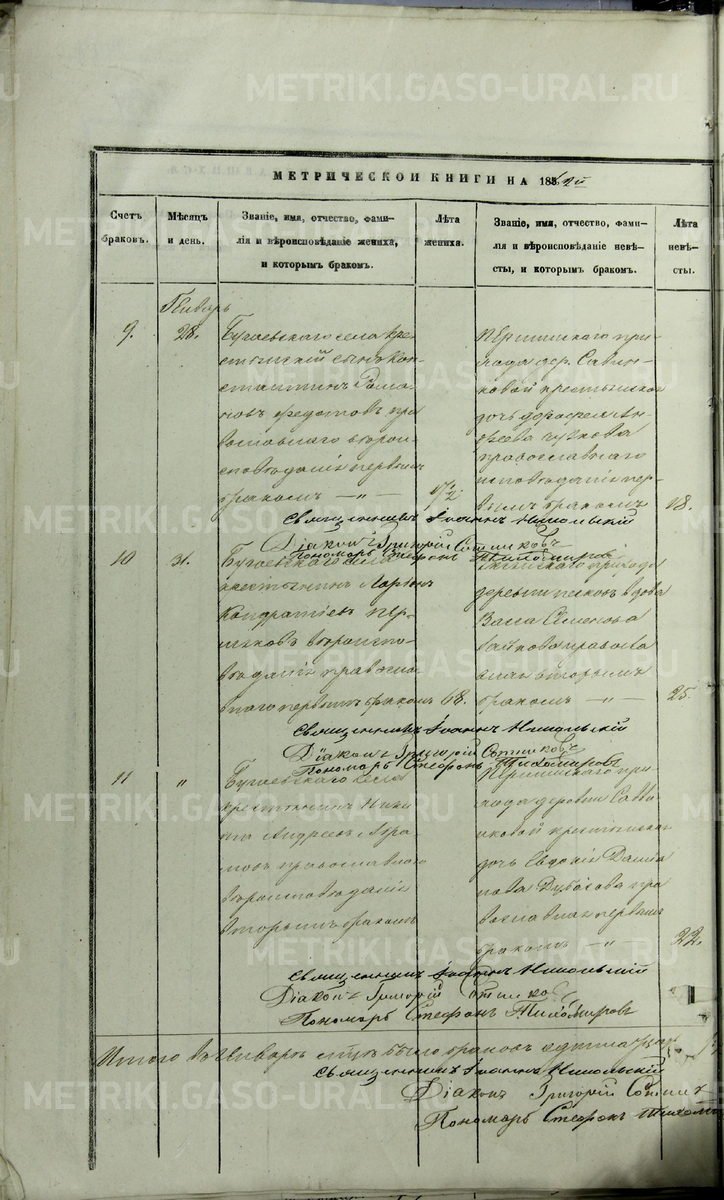 МЕТРИЧЕСКОЙ КНИГИ НА 1862й
Счетъ браковъ.
Мѣсяцъ и день.
Званіе, имя, отчество, фами-
лія и вѣроисповѣданіе жениха,
и которымъ бракомъ.
Лѣта
жениха.
Званіе, имя, отчество, фами-
лія и вѣроисповѣданіе невѣ-
сты, и которымъ бракомъ.
Лѣта
невѣ-
сты.
Генварь
9.
28.
Бугаевскаго села кре-
стьянскій сынъ Кон-
стантинъ Рома-
новъ Федотовъ пра
вославнаго вѣроис-
повѣданія первымъ
бракомъ — „ —
Першинскаго при-
хода дер. Савин-
ковой крестьянская
дочь
православнаго
исповѣданія пер-
вымъ бракомъ
18.
Священникъ Іоаннъ Никольскій
Діаконъ Григорій Сотниковъ
Пономарь Стефанъ Тихомировъ
10
31.
Бугаевскаго села
крестьянинъ Ларіонъ
Кондратіевъ Пер-
шковъ вѣроиспо-
вѣданія правосла-
внаго первымъ бракомъ
68.
прихода
деревни вдова
Семенова
правосла
вная вторымъ
бракомъ — „ —
25.
Священникъ Іоаннъ Никольскій
Діаконъ Григорій Сотниковъ
Пономарь Стефанъ Тихомировъ
11
„
Бугаевскаго села
крестьянинъ Ники
та Андреевъ Абра-
мовъ православнаго
вѣроисповѣданія
вторымъ бракомъ
Першинскаго при-
хода деревни Савин-
ковой крестьянская
дочь Евдокія Дани
лова Дубасова пра
вославная первымъ
бракомъ — „ —
22.
Священникъ Іоаннъ Никольскій
Діаконъ Григорій Сотниковъ
Пономарь Стефанъ Тихомировъ
Итого въ Генварѣ м-цѣ было браковъ одиннадцать
Священникъ Іоаннъ Никольскій
Діаконъ Григорій
Пономарь Стефанъ
METRIKI.GASO-URAL.RU